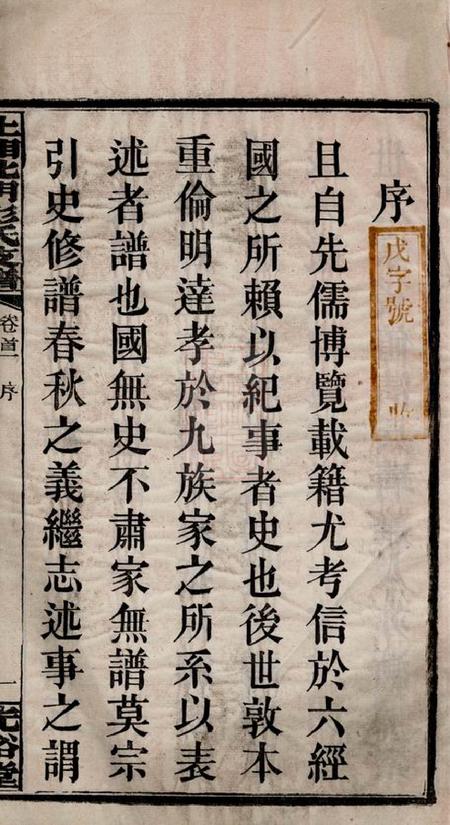 序
戊字號
且自先儒博覽載籍尤考信於六經
國之所賴以紀事者史也後世敦本
重倫明達孝於九族家之所系以表
述者譜也國無史不肅家無譜莫宗
引史修譜春秋之義繼志述事之謂
北門彭氏支譜
卷首
序
一
光裕堂